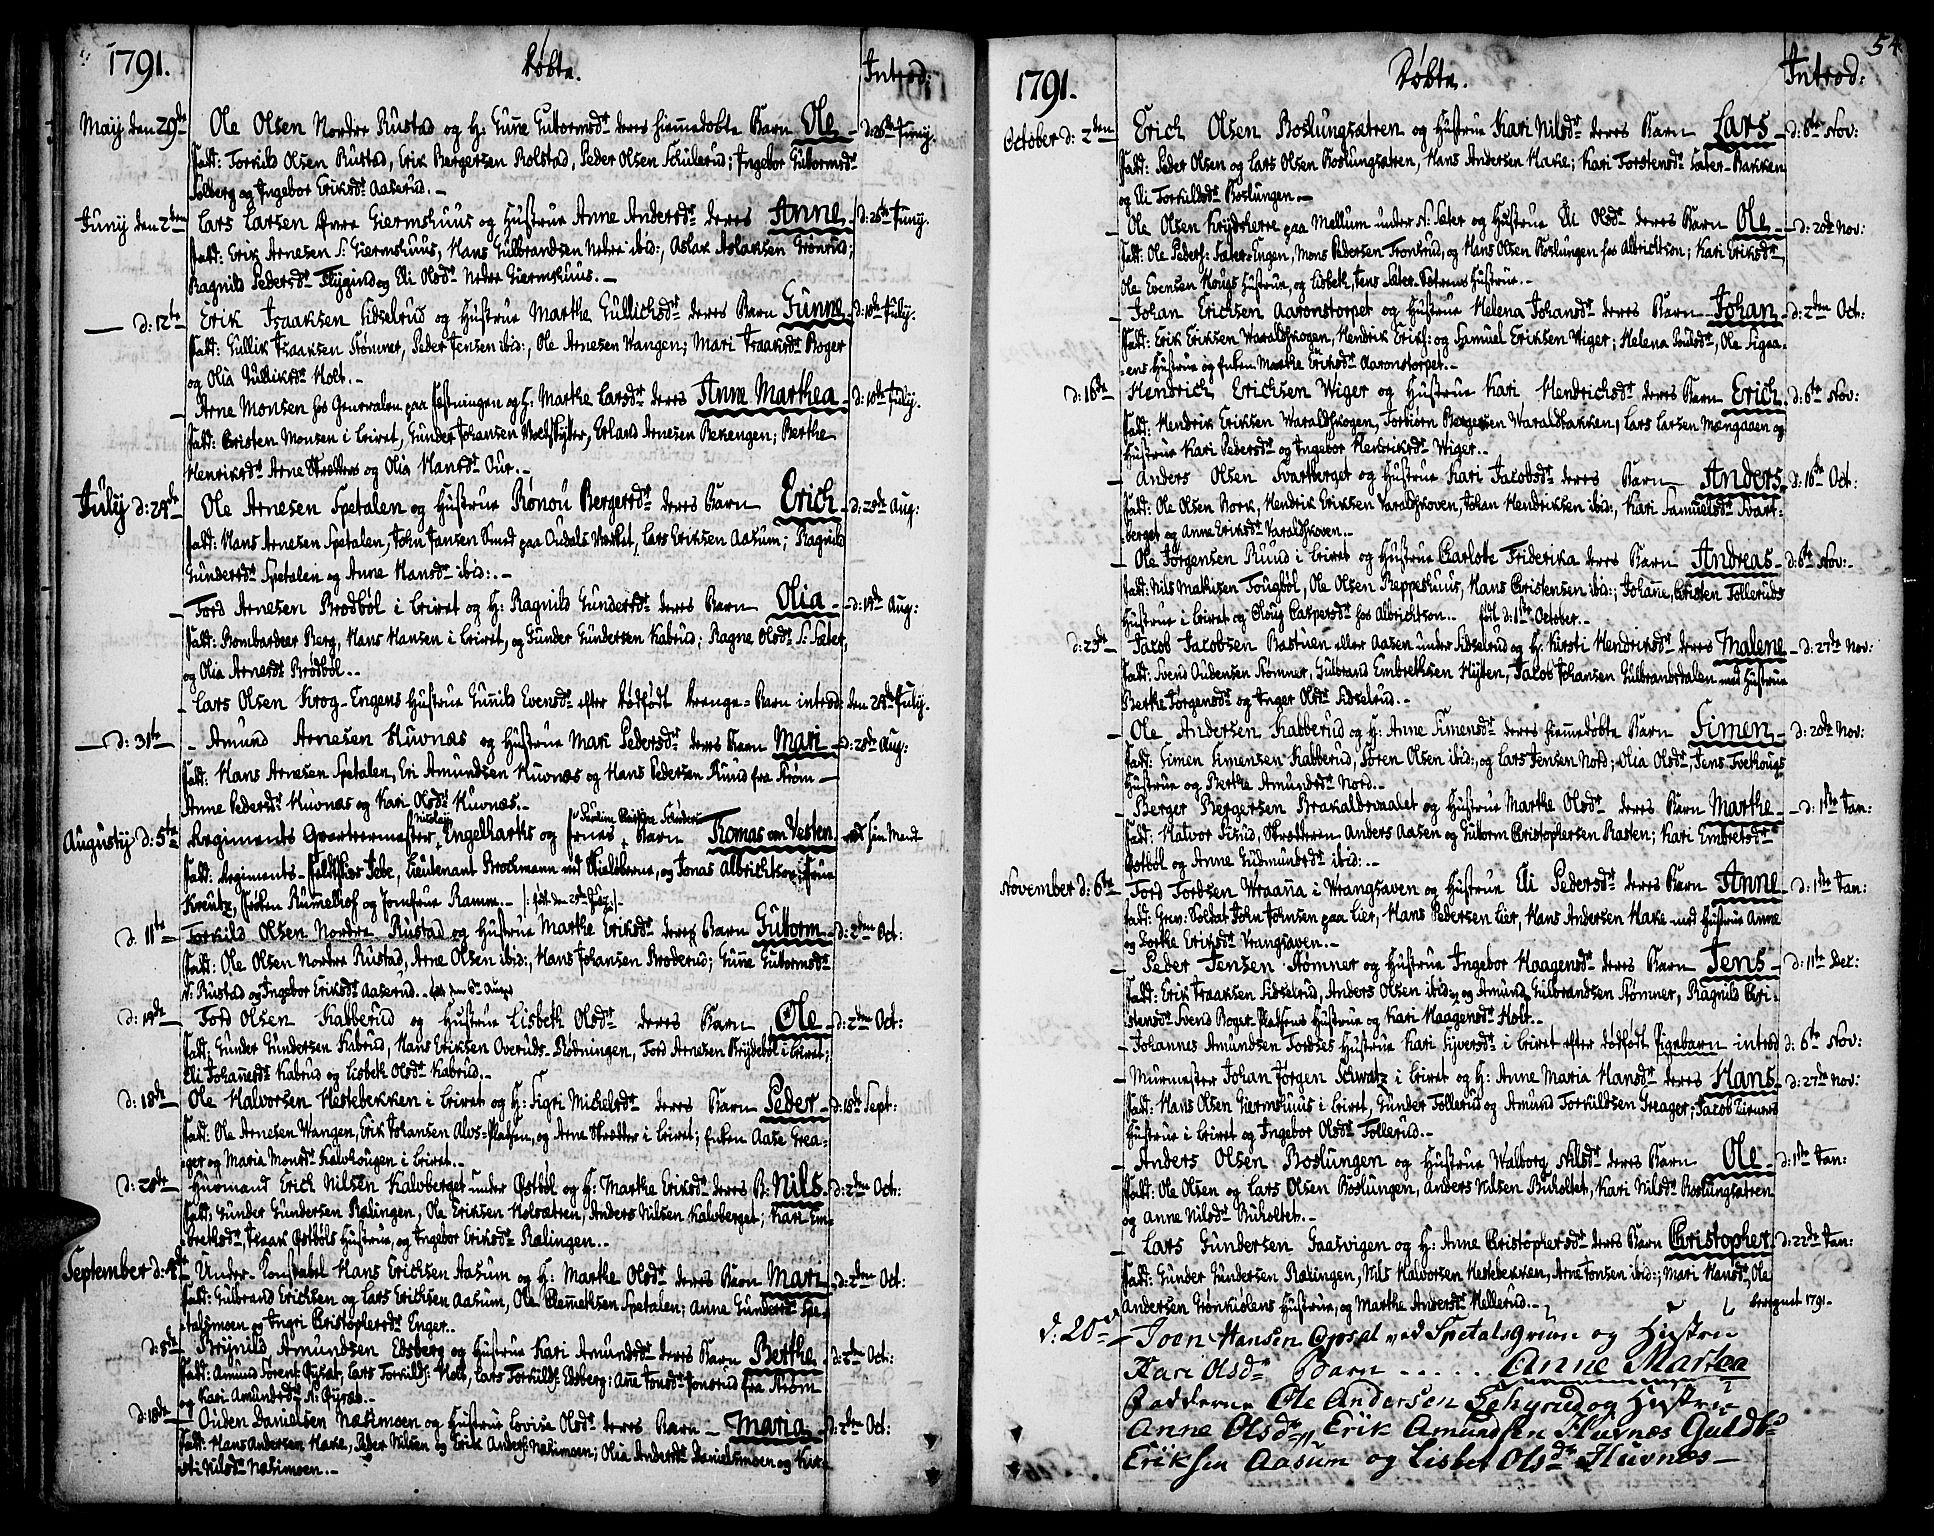 1791. Døbte. Introd:
May den 29de Ole Olsen Nordre Rustad og H: Guñe Guttormsdr deres hiemmedøbte Barn Ole d: 26de Juny.
Fadd: Torkild Olsen Rustad, Erik Bergersen Rolstad, Peder Olsen Schulerud; Ingebor Guttormsdr
Solberg og Ingebor Eriksdr Aaserud.
Juny den 2den Lars Larsen Øvre Giermshuus og Hustrue Anne Andersdr deres Anne d: 26de Juny.
Fadd: Erik Arnesen S: Giermshuus, Hans Gulbrandsen Nedre ibid:, Aslak Aslaksen Grønrud;
Ragnild Pedersdr Flygind og Eli Olsdr Nedre Giermshuus.
d: 12te Erik Isaaksen Sidselrud og Hustrue Marthe Gullichsdr deres Barn Gunne d: 10de July.
Fadd: Gullik Isaaksen Stømner, Peder Jensen ibid:, Ole Arnesen Wangen; Mari Isaaksdr Boger
og Olia Gulliksdr Holt.
Arne Monsen hos Generalen paa Festningen og H: Marthe Larsdr deres Anne Marthea d: 10de July.
Fadd: Christen Monsen i Leiret, Gunder Johansen Vedskyter, Erland Arnesen Bekengen; Berthe
Henriksdr Arne Skrædders og Olia Hansdr Our.
July d: 24de Ole Arnesen Spetalen og Hustrue Rønou Bergersdr deres Barn Erich d: 28de Aug:
Fadd: Hans Arnesen Spetalen, John Jansen Smed paa Oudals Verket, Lars Eriksen Aasum; Ragnild
Gundersdr Spetalen og Anne Hansdr ibid:.
Tord Arnesen Brodbøl i Leiret og H: Ragnild Gundersdr deres Barn Olia d: 14de Aug:
Fadd: Bombardeer Berg, Hans Hansen i Leiret, og Gunder Gundersen Kabrud; Ragne Olsdr S: Sæter,
og Olia Arnesdr Brodbøl.
Lars Olsen Krog-Engens Hustrue Gunild Evensdr efter dødfødt Drenge-Barn introd: den 24de July.
d: 31te Amund Arnesen Huvnæs og Hustrue Mari Pedersdr deres Barn Mari d: 28de Aug:
Fadd: Hans Arnesen Spetalen, Eri Amundsen Huvnæs og Hans Pedersen Ruud fra Strøm
Anne Pedersdr Huvnæs og Kari Olsdr Huvnæs.
Nicolay Paulin Christine Schiøder
Augusty d: 5te Regiments Qvarteermester Engelharts og Frues Barn Thomas von Vesten
Fadd: Regiments-Feldskiær Jebe, Lieutenant Brochmann ved Skieløberne, og Jonas Albrichtson; Frue
Kreutz, Frøken Rumelhof og Jomfrue Ramm. født den 29de July
d: 11te Torkild Olsen Nordre Rustad og Hustrue Marthe Eriksdr deres Barn Guttorm d: 2den Oct:
Fadd: Ole Olsen Nordre Rustad, Arne Olsen ibid:, Hans Johansen Broderud; Guñe Guttormsdr
N: Rustad og Ingebor Eriksdr Aaserud.
d: 14de Tord Olsen Kabberud og Hustrue Lisbeth Olsdr deres Barn Ole d: 2den Oct:
Fadd: Gunder Gundersen Kabrud, Hans Eriksen Overuds-Rødningen, Tord Arnesen Brydebøl i Leiret;
Eli Johañesdr Kabrud og Lisbeth Olsdr Kabrud.
d: 18de Ole Halvorsen Hestebekken i Leiret og H: Sigri Michelsdr deres Barn Peder d: 18de Sept:
Fadd: Ole Arnesen Wangen, Erik Johansen Alvs-Pladsen, og Arne Skrædder i Leiret; Enken Aase Grea-
ger og Maria Monsdr Kalvhougen i Leiret.
d: 28de Huusmand Erich Nilsen Kalvberget under Østbøl og H: Marthe Eriksdr deres B: Nils d: 2den Oct:
Fadd: Gunder Gundersen Rælingen, Ole Eriksen Holsætren, Anders Nilsen Kalvberget; Kari Em-
brethsdr, Isaak Østbøls Hustrue, og Ingebor Eriksdr Rælingen.
September d: 4de Under-Konstabel Hans Erichsen Aasum og H: Marthe Olsdr deres Barn Mari d: 2den Oct:
Fadd: Gulbrand Erichsen og Lars Erichsen Aasum, Ole Clemmethsen Spetalen; Anne Gundersdr Spe-
talsmoen og Ingri Christophersdr Enger.
d: 5te Brynild Amundsen Edsberg og Hustrue Kari Amundsdr deres Barn Berthe d: 2den Oct:
Fadd: Amund Sorens: Øysæt, Lars Torkilds: Holt, Lars Torkilds: Edsberg; Añe Jonsdr Jonsrud fra Strøm
og Kari Amundsdr N: Øysæt.
d: 18de Ouden Danielsen Næsimoen og Hustrue Lovise Olsdr deres Barn Maria d: 2den Oct:
Fadd: Hans Andersen Hake, Peder Nilsen og Erik Anders: Næsimoen; Olia Andersdr Danielsmoen og Kir-
sti Nilsdr Næsimoen.
1791. Døbte. Introd: 54.
October d: 2den Erich Olsen Boslungsætren og Hustrue Kari Nilsdr deres Barn Lars d: 6te Nov:
Fadd: Peder Olsen og Lars Olsen Boslungsætren, Hans Andersen Hake; Kari Torstensdr Sæter-Bakken
og Eli Torkildsdr Boslungen.
Ole Olsen Krydsherre paa Mellum under N: Sæter og Hustrue Eli Olsdr deres Barn Ole d: 20de Nov:
Fadd: Ole Peders: Sæter-Engen, Mons Pedersen Tronsrud, og Hans Olsen Boslungen hos Albrichtson; Kari Eriksdr,
Ole Evensen Hougs Hustrue, og Lisbeth, Jens Sæter-Sætrens Hustrue.
Johan Erichsen Aaronstorpet og Hustrue Helena Johansdr deres Barn Johan d: 2den Oct:
Fadd: Erik Eriksen Waraldskogen, Hendrik Eriks: og Samuel Eriksen Wiger; Helena Poulsdr, Ole Sigaa-
ens Hustrue og Enken Marthe Eriksdr Aaronstorpet.
d: 16de Hendrich Erichsen Wiger og Hustrue Kari Hendrichsdr deres Barn Erich d: 6te Nov:
Fadd: Hendrik Eriksen Waraldskogen, Torbiørn Bergersen Waraldbakken, Lars Larsen Mangaaen og
Hustrue Kari Pedersdr og Ingebor Hendriksdr Wiger.
Anders Olsen Svartberget og Hustrue Kari Jacobsdr deres Barn Anders d: 16de Oct:
Fadd: Ole Olsen Bork, Hendrik Eriksen Varaldskoven, Johan Hendriksen ibid:, Kari Samuelsdr Svart-
berget og Anne Eriksdr Varaldskoven.
Ole Jørgensen Ruud i Leiret og Hustrue Charlotte Friderika deres Barn Andreas d: 6te Nov:
Fadd: Nils Mathisen Tougbøl, Ole Olsen Reppeshuus, Hans Christensen ibid:; Johañe, Christen Tolleruds
Hustrue i Leiret og Oloug Caspersdr hos Albrichtson. født d: 1ste October.
d: 23de Jacob Jacobsen Bastuen eller Aasen under Sidselrud og H: Kirsti Hendriksdr deres Malene d: 27de Nov:
Fadd: Svend Oudensen Stømner, Gulbrand Embrethsen Hyten, Jacob Johansen Gulbrandsdalen med Hustrue
Berthe Jørgensdr og Inger Olsdr Sidselrud.
Ole Andersen Kabberud og H: Anne Simensdr deres hiemmedøbte Barn Simen d: 20de Nov:
Fadd: Simen Simensen Kabberud, Søren Olsen ibid:, og Lars Jensen Nord; Olia Olsdr, Jens Tvethougs
Hustrue og Berthe Amundsdr Nord.
Berger Bergersen Brakaldemalet og Hustrue Marthe Olsdr deres Barn Marthe d: 1ste Jan:
Fadd: Halvor Sizud, Skrædderen Anders Aasen og Guttorm Christophersen Rasten; Kari Embretsdr
Østbøl og Anne Gudmundsdr ibid:.
November d: 6te Tord Tordsen Wraaña i Wrangsaven og Hustrue Eli Pedersdr deres Barn Anne d: 1ste Jan:
Fadd: Gren: Soldat John Johnsen paa Lier, Hans Pedersen Lier, Hans Andersen Hake med Hustrue Anne
og Dorthe Eriksdr Vrangsaven.
Peder Jensen Stømner og Hustrue Ingebor Haagensdr deres Barn Jens d: 11te Dec:
Fadd: Erik Isaaksen Sidselrud, Anders Olsen ibid: og Amund Gulbrandsen Stømner, Ragnild Chri-
stensdr Svend Boger-Pladsens Hustrue og Kari Haagensdr Holt.
Johannes Amundsen Tordses Hustrue Kari Syversdr i Leiret efter dødfødt Pigebarn introd d: 6te Nov:
Murmester Johan Jørgen Schwatz i Leiret og H: Anne Maria Hansdr deres Hans d: 27de Nov:
Fadd: Hans Olsen Giermshuus i Leiret, Gunder Tollerud og Amund Torkildsen Greager; Jacob
Hustrue i Leiret og Ingebor Olsdr Tollerud.
Anders Olsen Boslungen og Hustrue Walborg Nilsdr deres Barn Ole d: 1ste Jan:
Fadd: Ole Olsen og Lars Olsen Boslungen, Anders Nilsen Buholtet, Kari Nilsdr Boslungsætren
og Anne Nilsdr Buholtet.
Lars Gundersen Gaasvigen og H: Anne Christophersdr deres Barn Christopher d: 22de Jan:
Fadd: Gunder Gundersen Rælingen, Nils Halvorsen Hestebekken, Arne Jonsen ibid:; Mari Hansdr, Ole
Andersen Grønkiølens Hustrue, og Marthe Andersdr Hellerud. beregnet 1791.
d: 20de Joen Hansen Opsal ved Spetalsgrun og Hustru
Kari Olsdr Barn ..... Anne Martea
Fadderne Ole Andersen og Hustru
Anne Olsdr Erik Amundsen Huvnæs Guldb:
Eriksen Aasum og Lisbet Olsdr Huvnæs